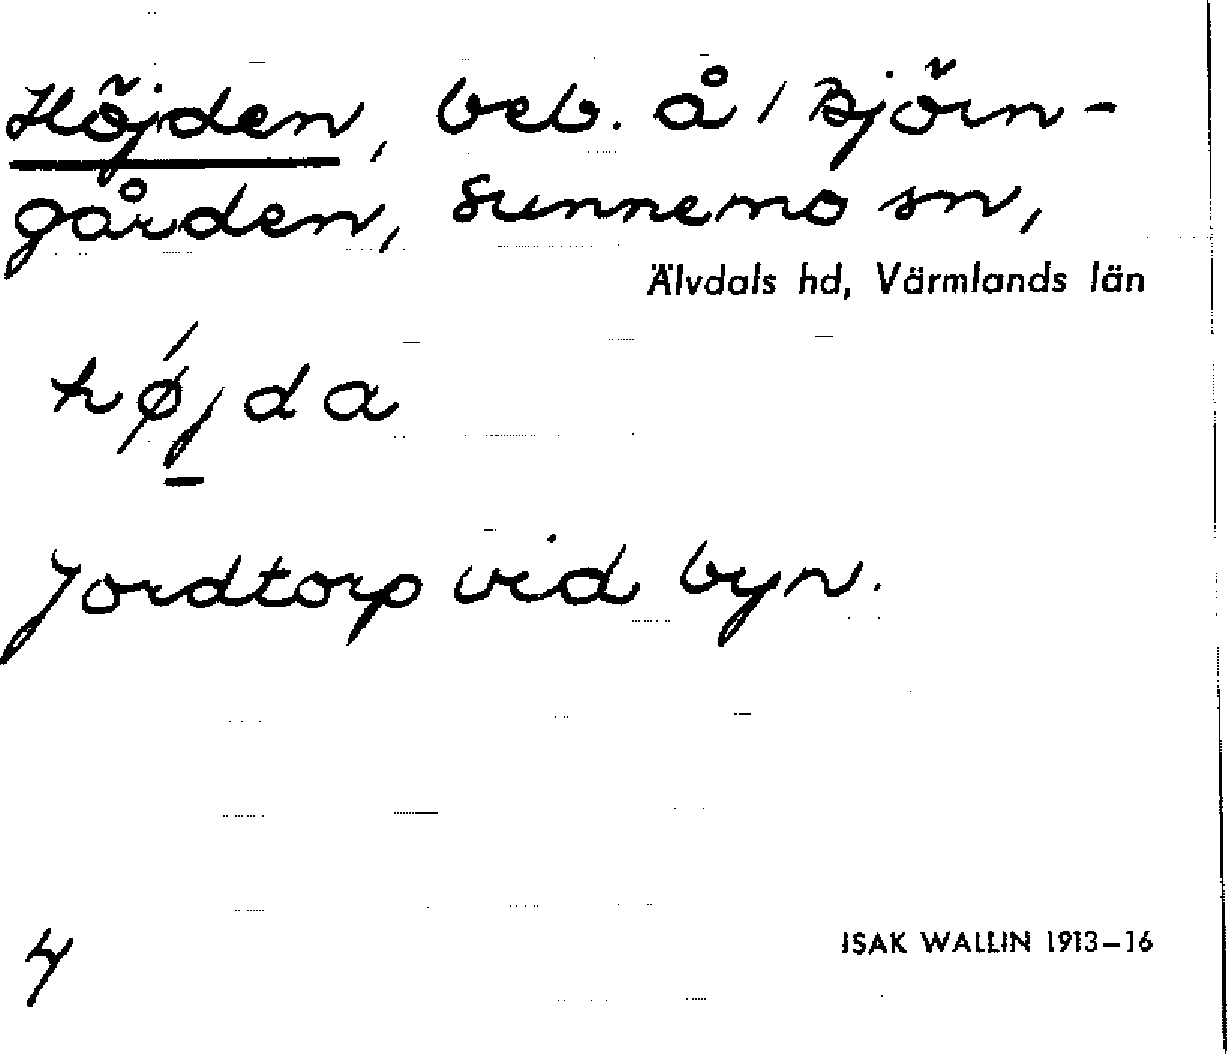 Höjden, beb. å 1 Björn-
gården, Sunnemo sn,
Älvdals hd, Värmlands län
hǿjda
Jordtorp vid byn.
4
ISAK WALLIN 1913–16